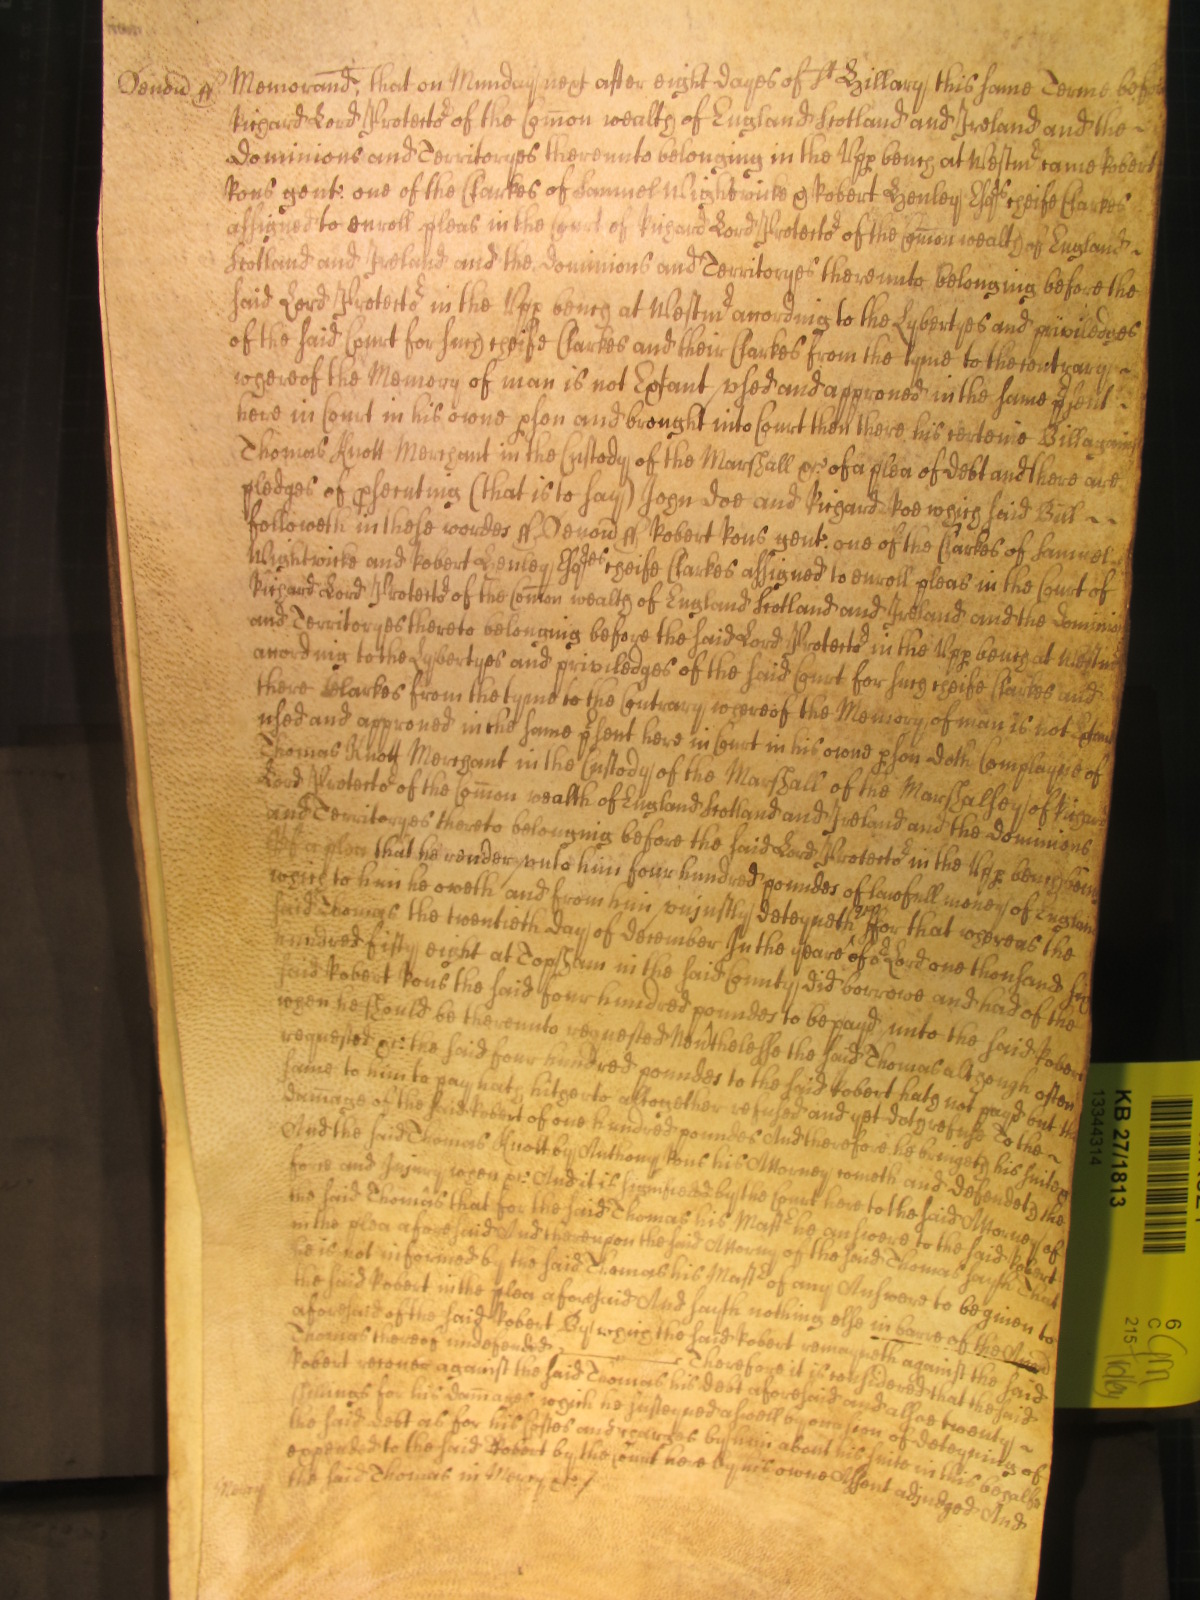 Devon ss Memorand, that on Munday next after eight dayes of St Hillary this same Terme before
Richard Lord Protector of the Comon wealth of England Scotland and Ireland and the
Dominions and Territoryes thereunto belonging in the Upp bench at Westmr came Robert
Rous gent: one of the Clarkes of Samuel Wightwicke & Robert Henley Esqrs cheife Clarkes
assigned to enroll pleas in the Court of Richard Lord Protector of the Comon wealth of England
Scotland and Ireland and the Dominions and Territoryes thereunto belonging before the
said Lord Protector in the Upp bench at Westmr according to the Lybertyes and priviledges
of the said Court for such cheife Clarkes and their Clarkes from the tyme to the contrary
whereof the Memory of man is not Extant used and approved in the same psent
here in Court in his owne pson and brought into Court then there his certeine Bill against
Thomas Knott Merchant in the Custody of the Marshall &c of a plea of debt and there are
pledges of psecuting (that is to say) John Doe and Richard Roe which said Bill
followeth in these wordes ss Devon ss Robert Rous gent: one of the Clarkes of Samuel
Wightwicke and Robert Henley Esqres cheife Clarkes assigned to enroll pleas in the Court of
Richard Lord Protector of the Comon wealth of England Scotland and Ireland and the Dominions
and Territoryes thereto belonging before the said Lord Protector in the Upp bench at Westmr
according to the Lybertyes and priviledges of the said Court for such cheife Clarkes and
there Clarkes from the tyme to the Contrary whereof the Memory of man is not Extant
used and approved in the same psent here in Court in his owne pson doth Complayne of
Thomas Knott Merchant in the Custody of the Marshall of the Marshalsey of Richard
Lord Protector of the Comon wealth of England Scotland and Ireland and the Dominions
and Territoryes thereto belonging before the said Lord Protector in the Upp bench being
plea that he render unto him four hundred poundes of lawfull money of England
which to him he oweth and from him unjustly deteyneth ffor that whereas the
said Thomas the twentieth day of December In the yeare of or Lord one thousand six
hundred fifty eight at Topsham in the said County did borrowe and had of the
said Robert Rous the said four hundred poundes to be payd unto the said Robert
when he should be thereunto requested Nevthelesse the said Thomas although often
requested &c: the said four hundred poundes to the said Robert hath not payd but the
same to him to pay hath hitherto altogether refused and yet doth refuse To the
damage of the said Robert of one hundred poundes And therefore he bringeth his suite &c
And the said Thomas Knott by Anthony Rous his Attorney cometh and defendeth the
force and Injury when &c: And it is signifyed by the Court here to the said Attorney of
the said Thomas that for the said Thomas his Mastr he answere to the said Robert
in the plea aforesaid And thereupon the said Attorny of the said Thomas sayth That
he is not informed by the said Thomas his Mastr of any Answere to be given to
the said Robert in the plea aforesaid And sayth nothing else in barre of the Accon
aforesaid of the said Robert By which the said Robert remayneth against the said
Thomas thereof undefended Therefore it is considered that the said
Robert recover against the said Thomas his debt aforesaid and alsoe twenty
shillings for his damages which he susteyned aswell by occasion of deteyning of
the said debt as for his Costes and charges by him about his suite in this behalfe
expended to the said Robert by the Court here by his owne Assent adjudged And
Mercy the said Thomas in Mercy &c /
KB 27/1813
13344314
6
C
215